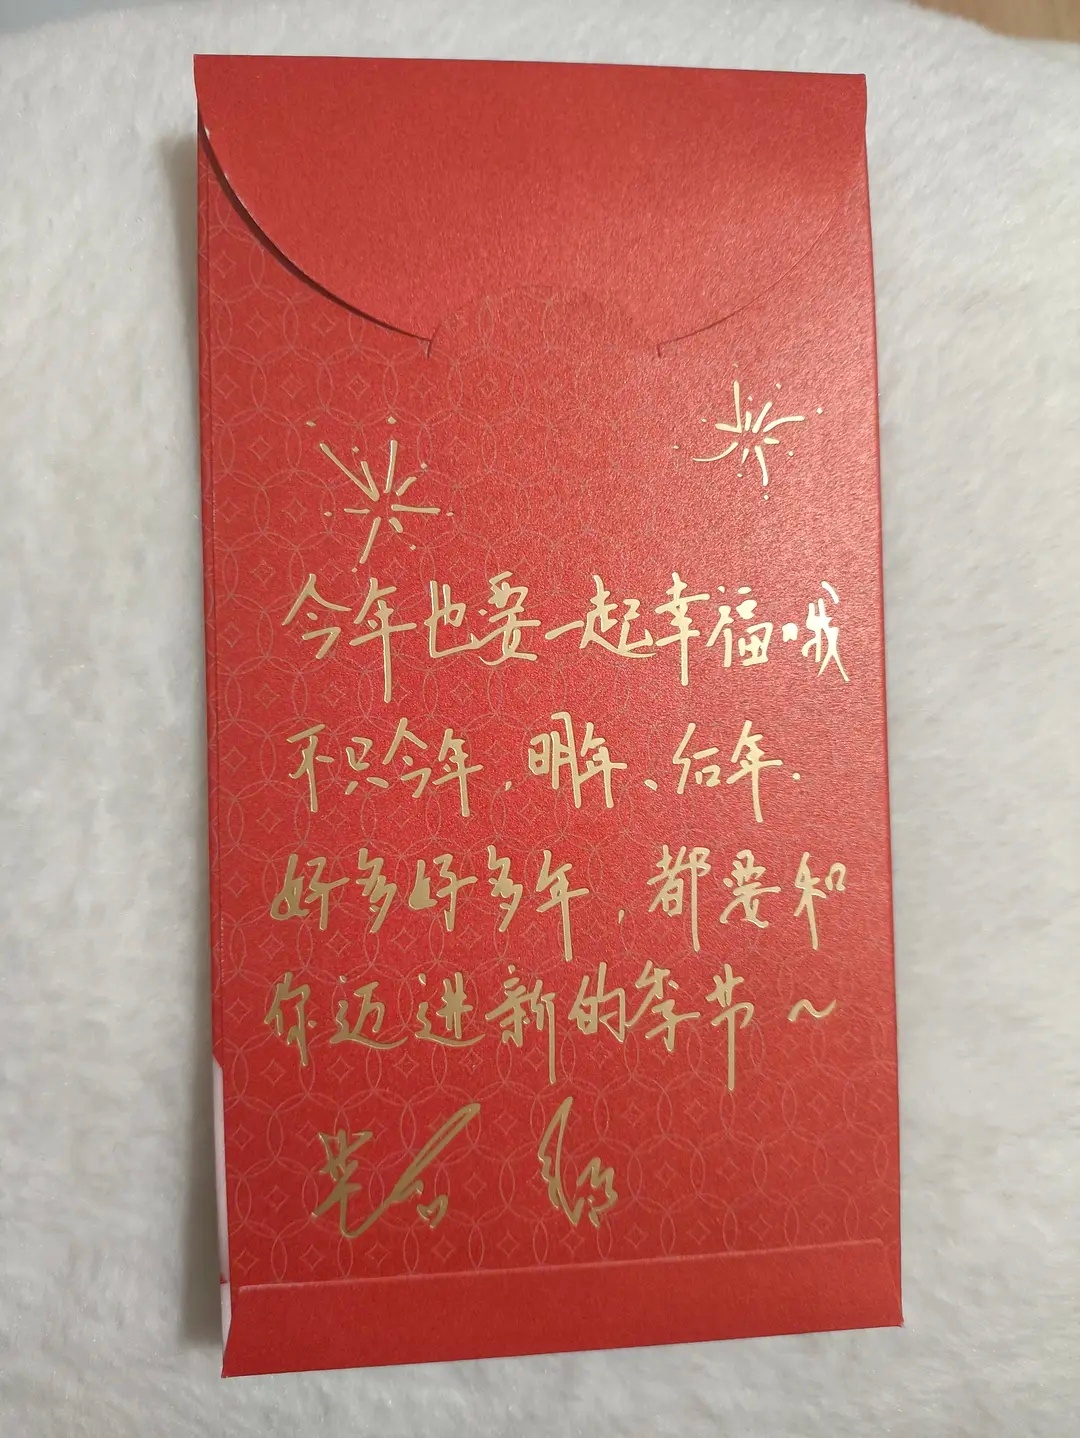 今年也要一起幸福哦
不只今年，明年、后年.
好多好多年，都要和
你迈进新的季节～